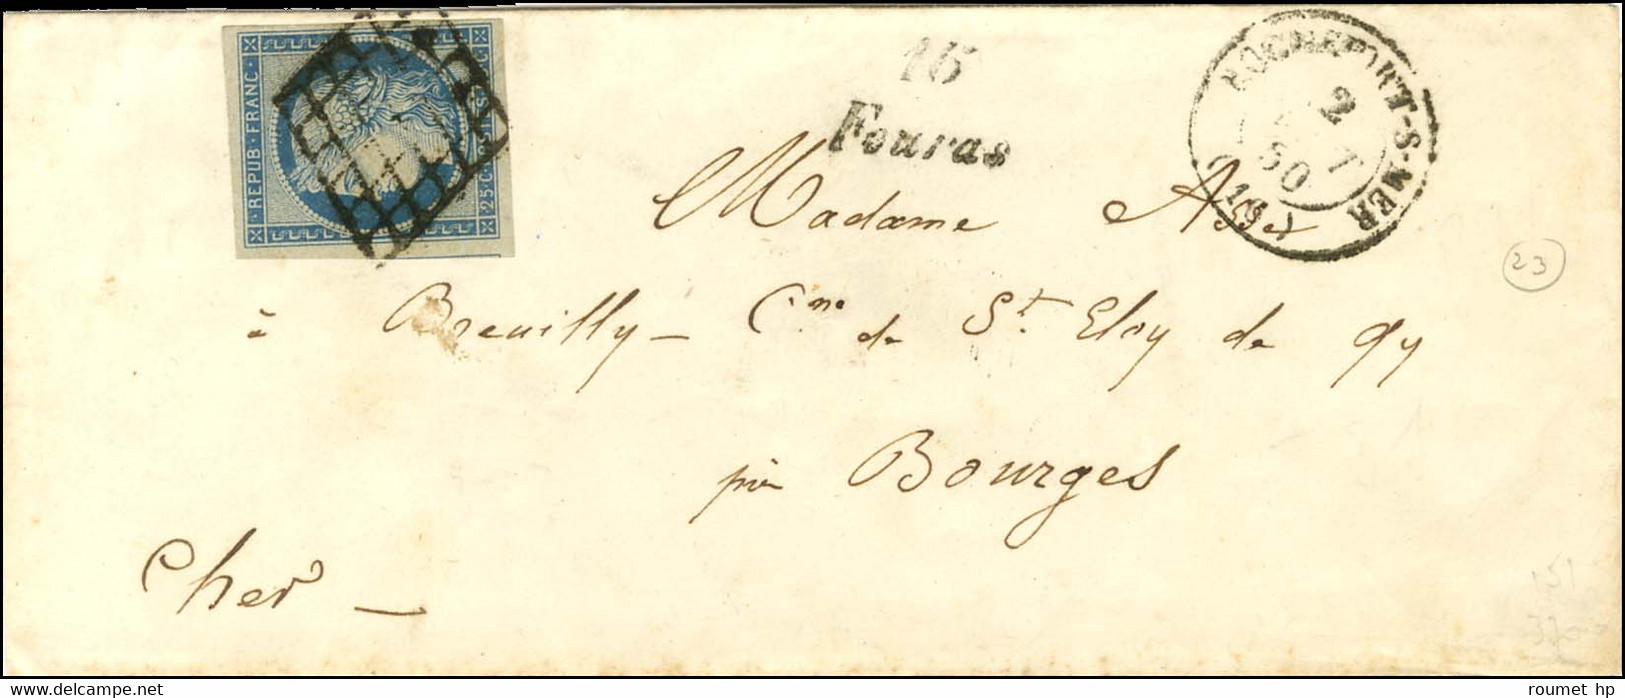 REPUB·FRANC·
25·C
16
Fouras
ROCHEFORT-S-MER
2
50
(16)
Madame
à Breuilly - Cne de St. Eloy de Gy
près Bourges
Cher -
23
151
delcampe.net
roumet hp